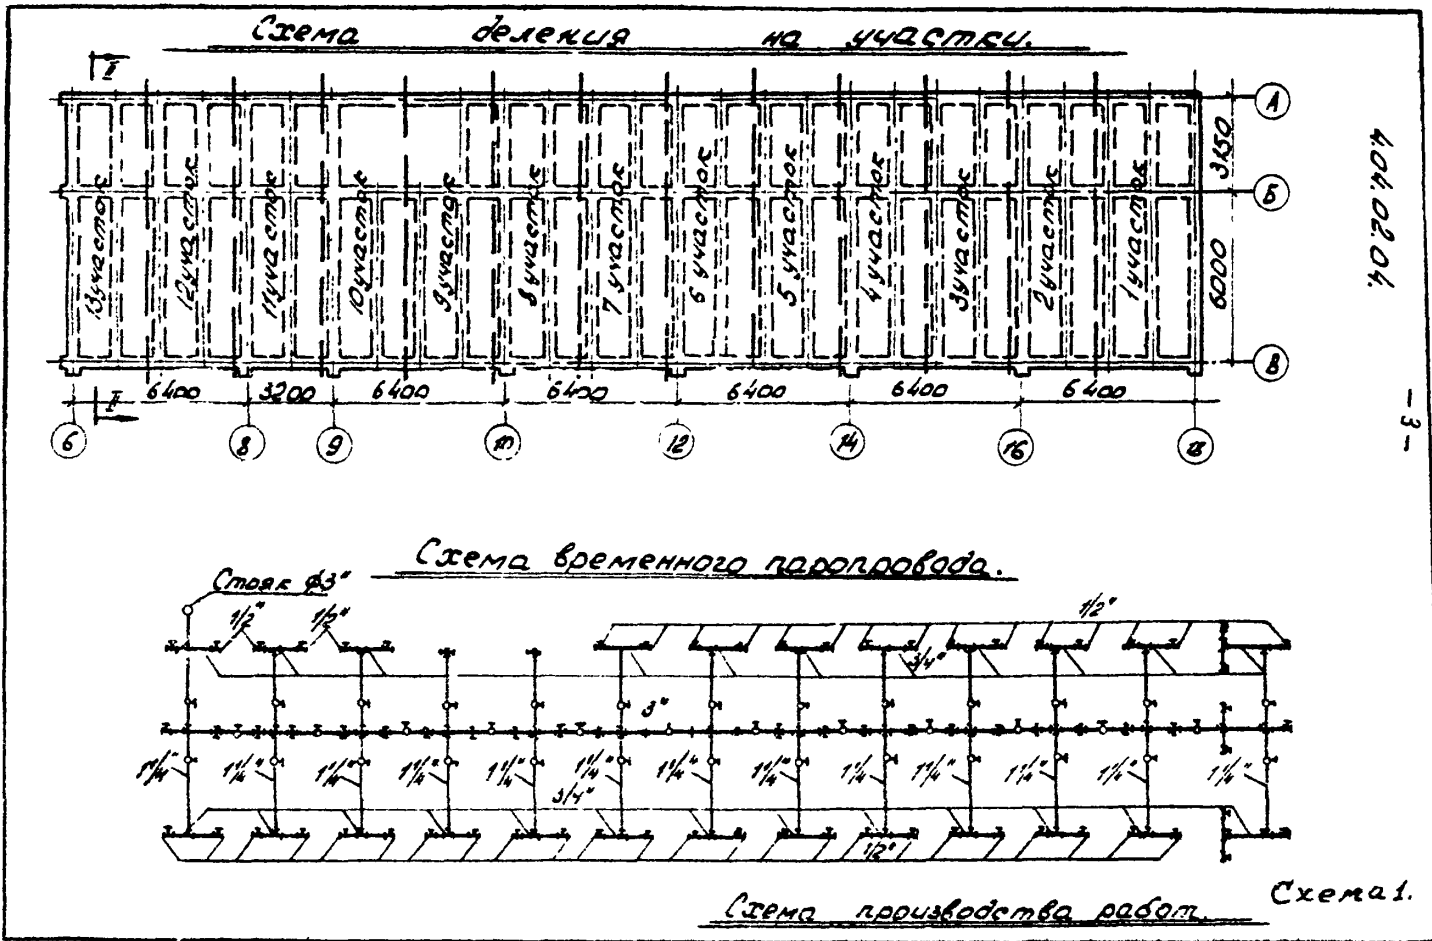 Схема деления на участки.
II
А
3150
Б
6000
В
13участок
12участок
11участок
10участок
9участок
8участок
7 участок
6 участок
5 участок
4 участок
3участок
2участок
1участок
II
6400 3200 6400 6400 6400 6400 6400
6 8 9 10 12 14 16 18
4.04.02.04.
-3-
Схема временного паропровода.
Стояк ф3"
1/2" 1/2" 1/2"
3/4"
3"
1 1/4" 1 1/4" 1 1/4" 1 1/4" 1 1/4" 1 1/4" 1 1/4" 1 1/4" 1 1/4" 1 1/4" 1 1/4" 1 1/4" 1 1/4"
3/4"
1/2"
Схема 1.
Схема производства работ.